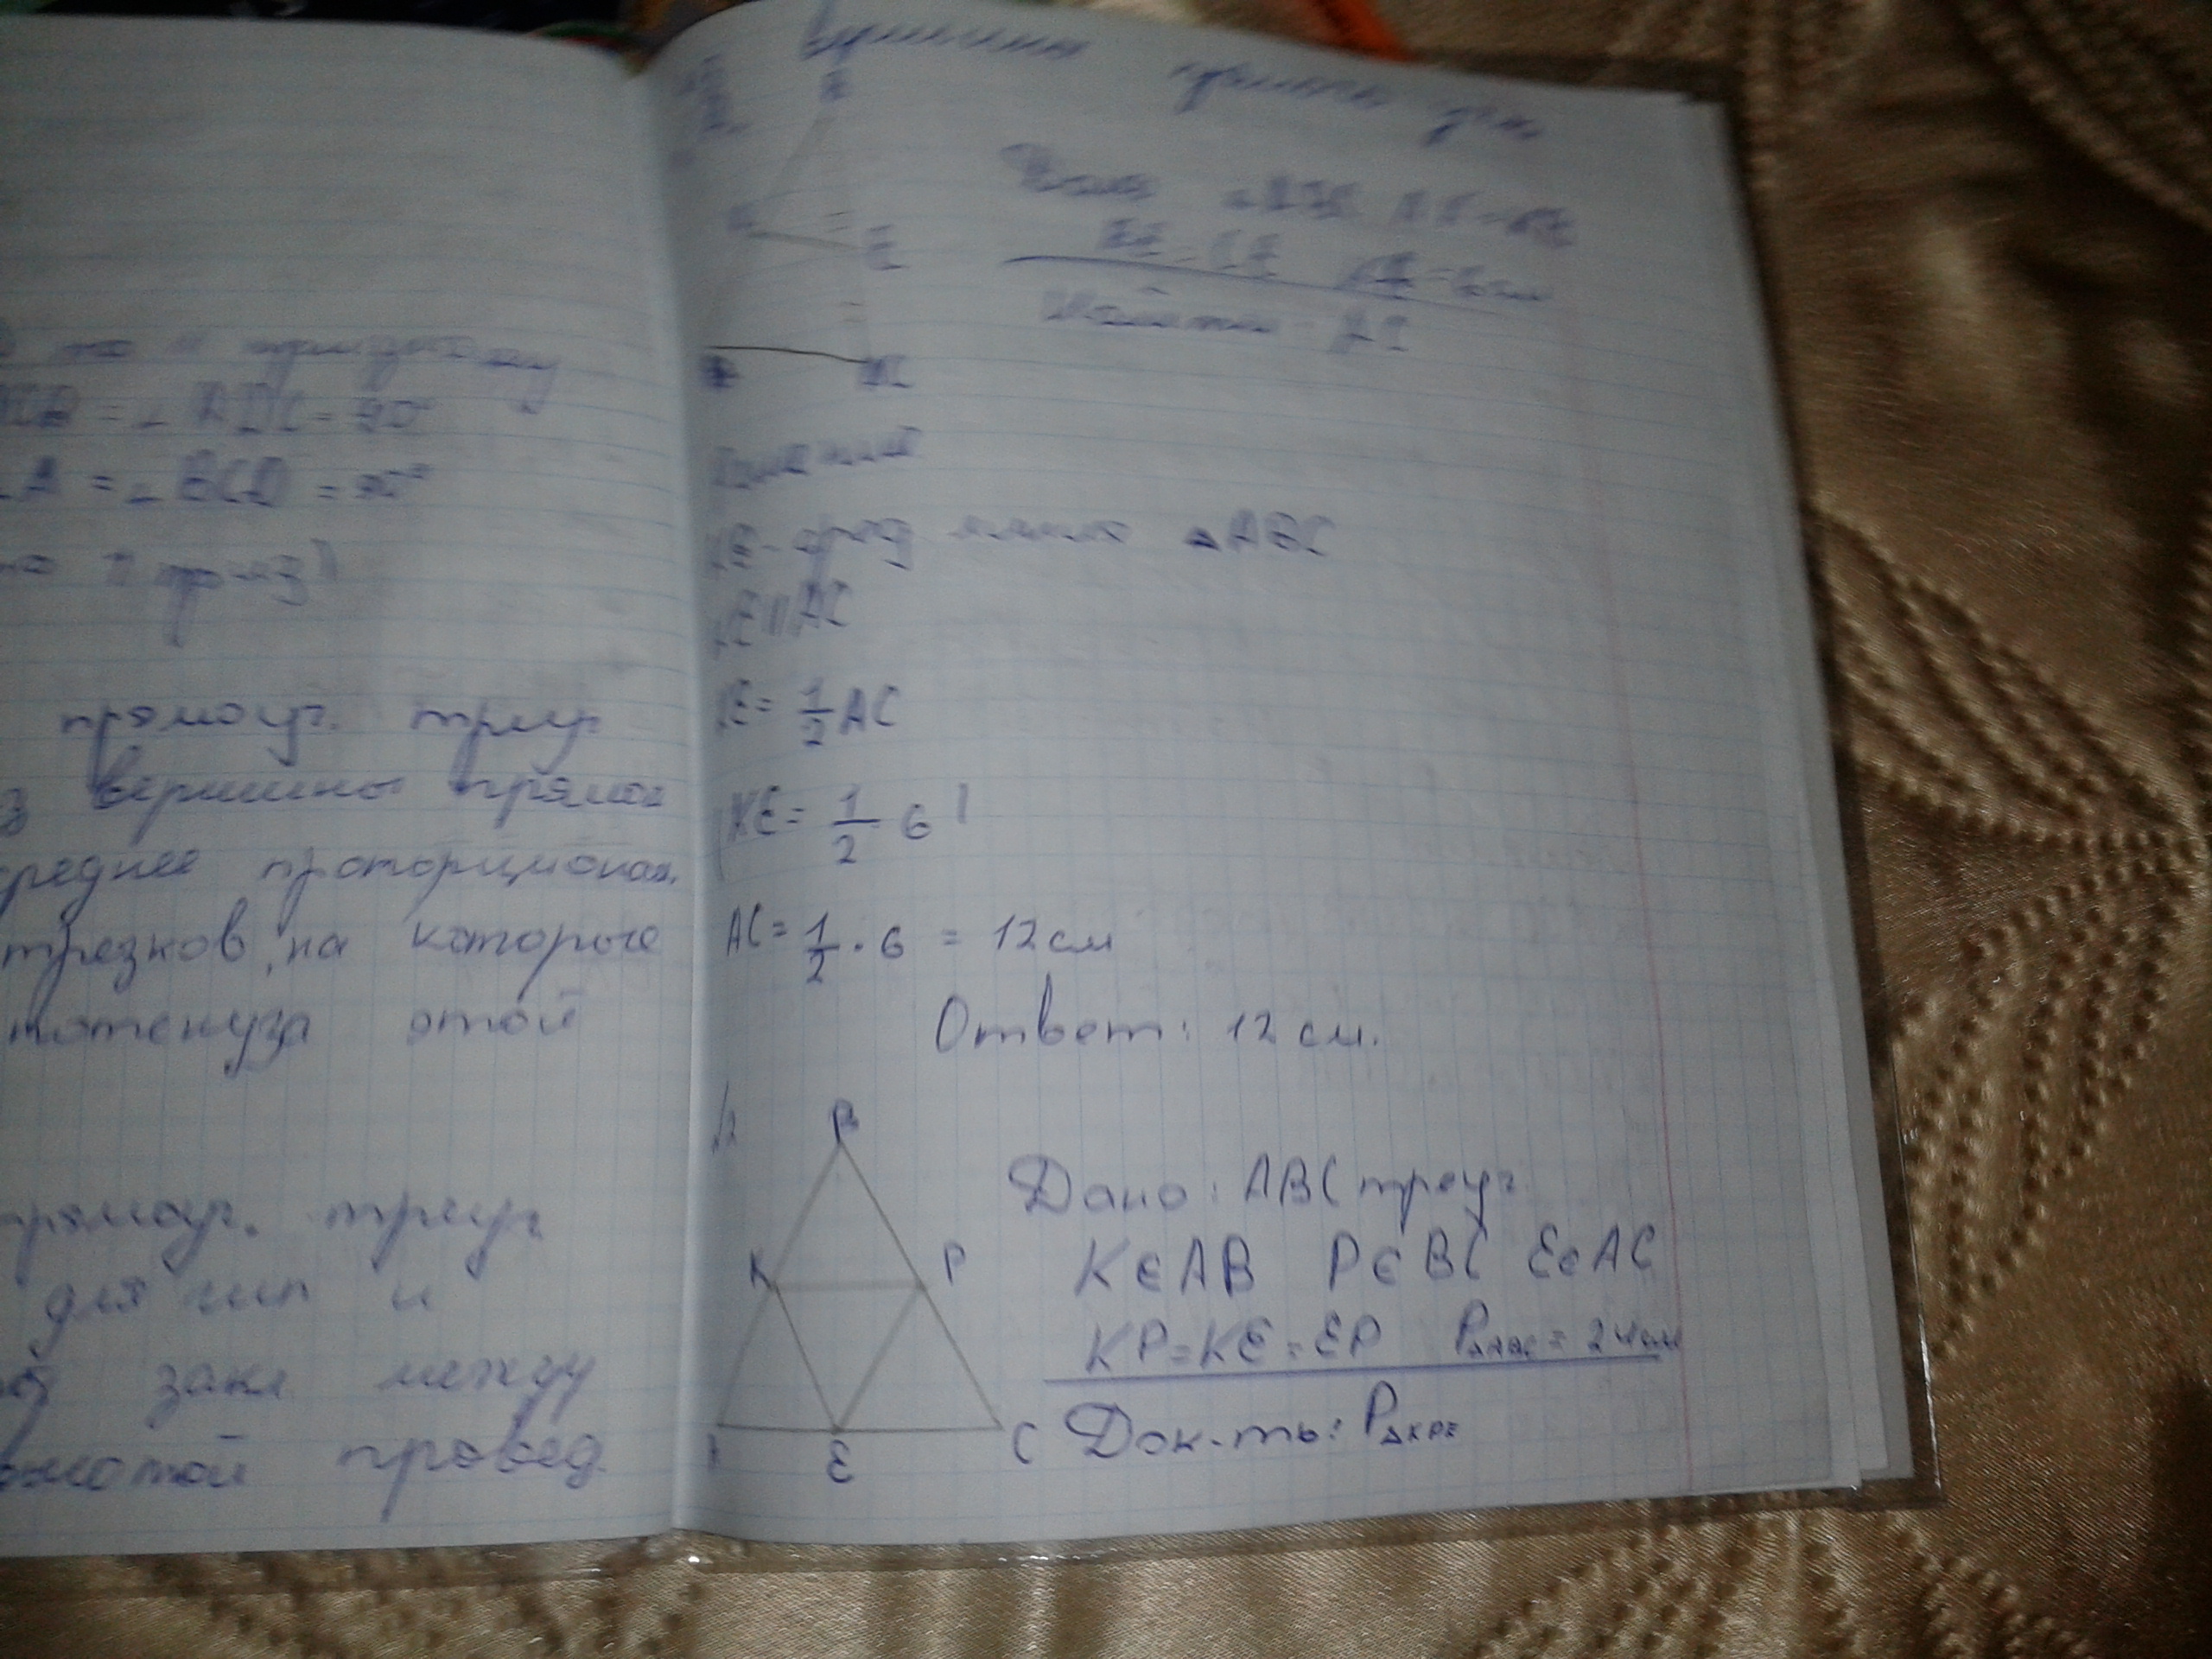 по II признаку
= ∠ADC = 90°
∠A = ∠BCD = 90°
по II приз
прямоуг. треуг
вершины прямог
среднее пропорционал.
отрезков, на которые
гипотенуза этой
прямоуг. треуг
для гип и
закл между
высотой провед.
вершины прямого угла
Дано: ΔABC
BE = CE KE = 6 см
Найти: AC
E
C
Решение
KE - сред линия ΔABC
KE || AC
KE = 1/2 AC
KE = 1/2 · 6
AC = 1/2 · 6 = 12 см
Ответ: 12 см.
√2
B
K P
A E C
Дано: ABC треуг.
K ∈ AB P ∈ BC E ∈ AC
KP = KE = EP PΔABC = 24 см
Док-ть: PΔKPE